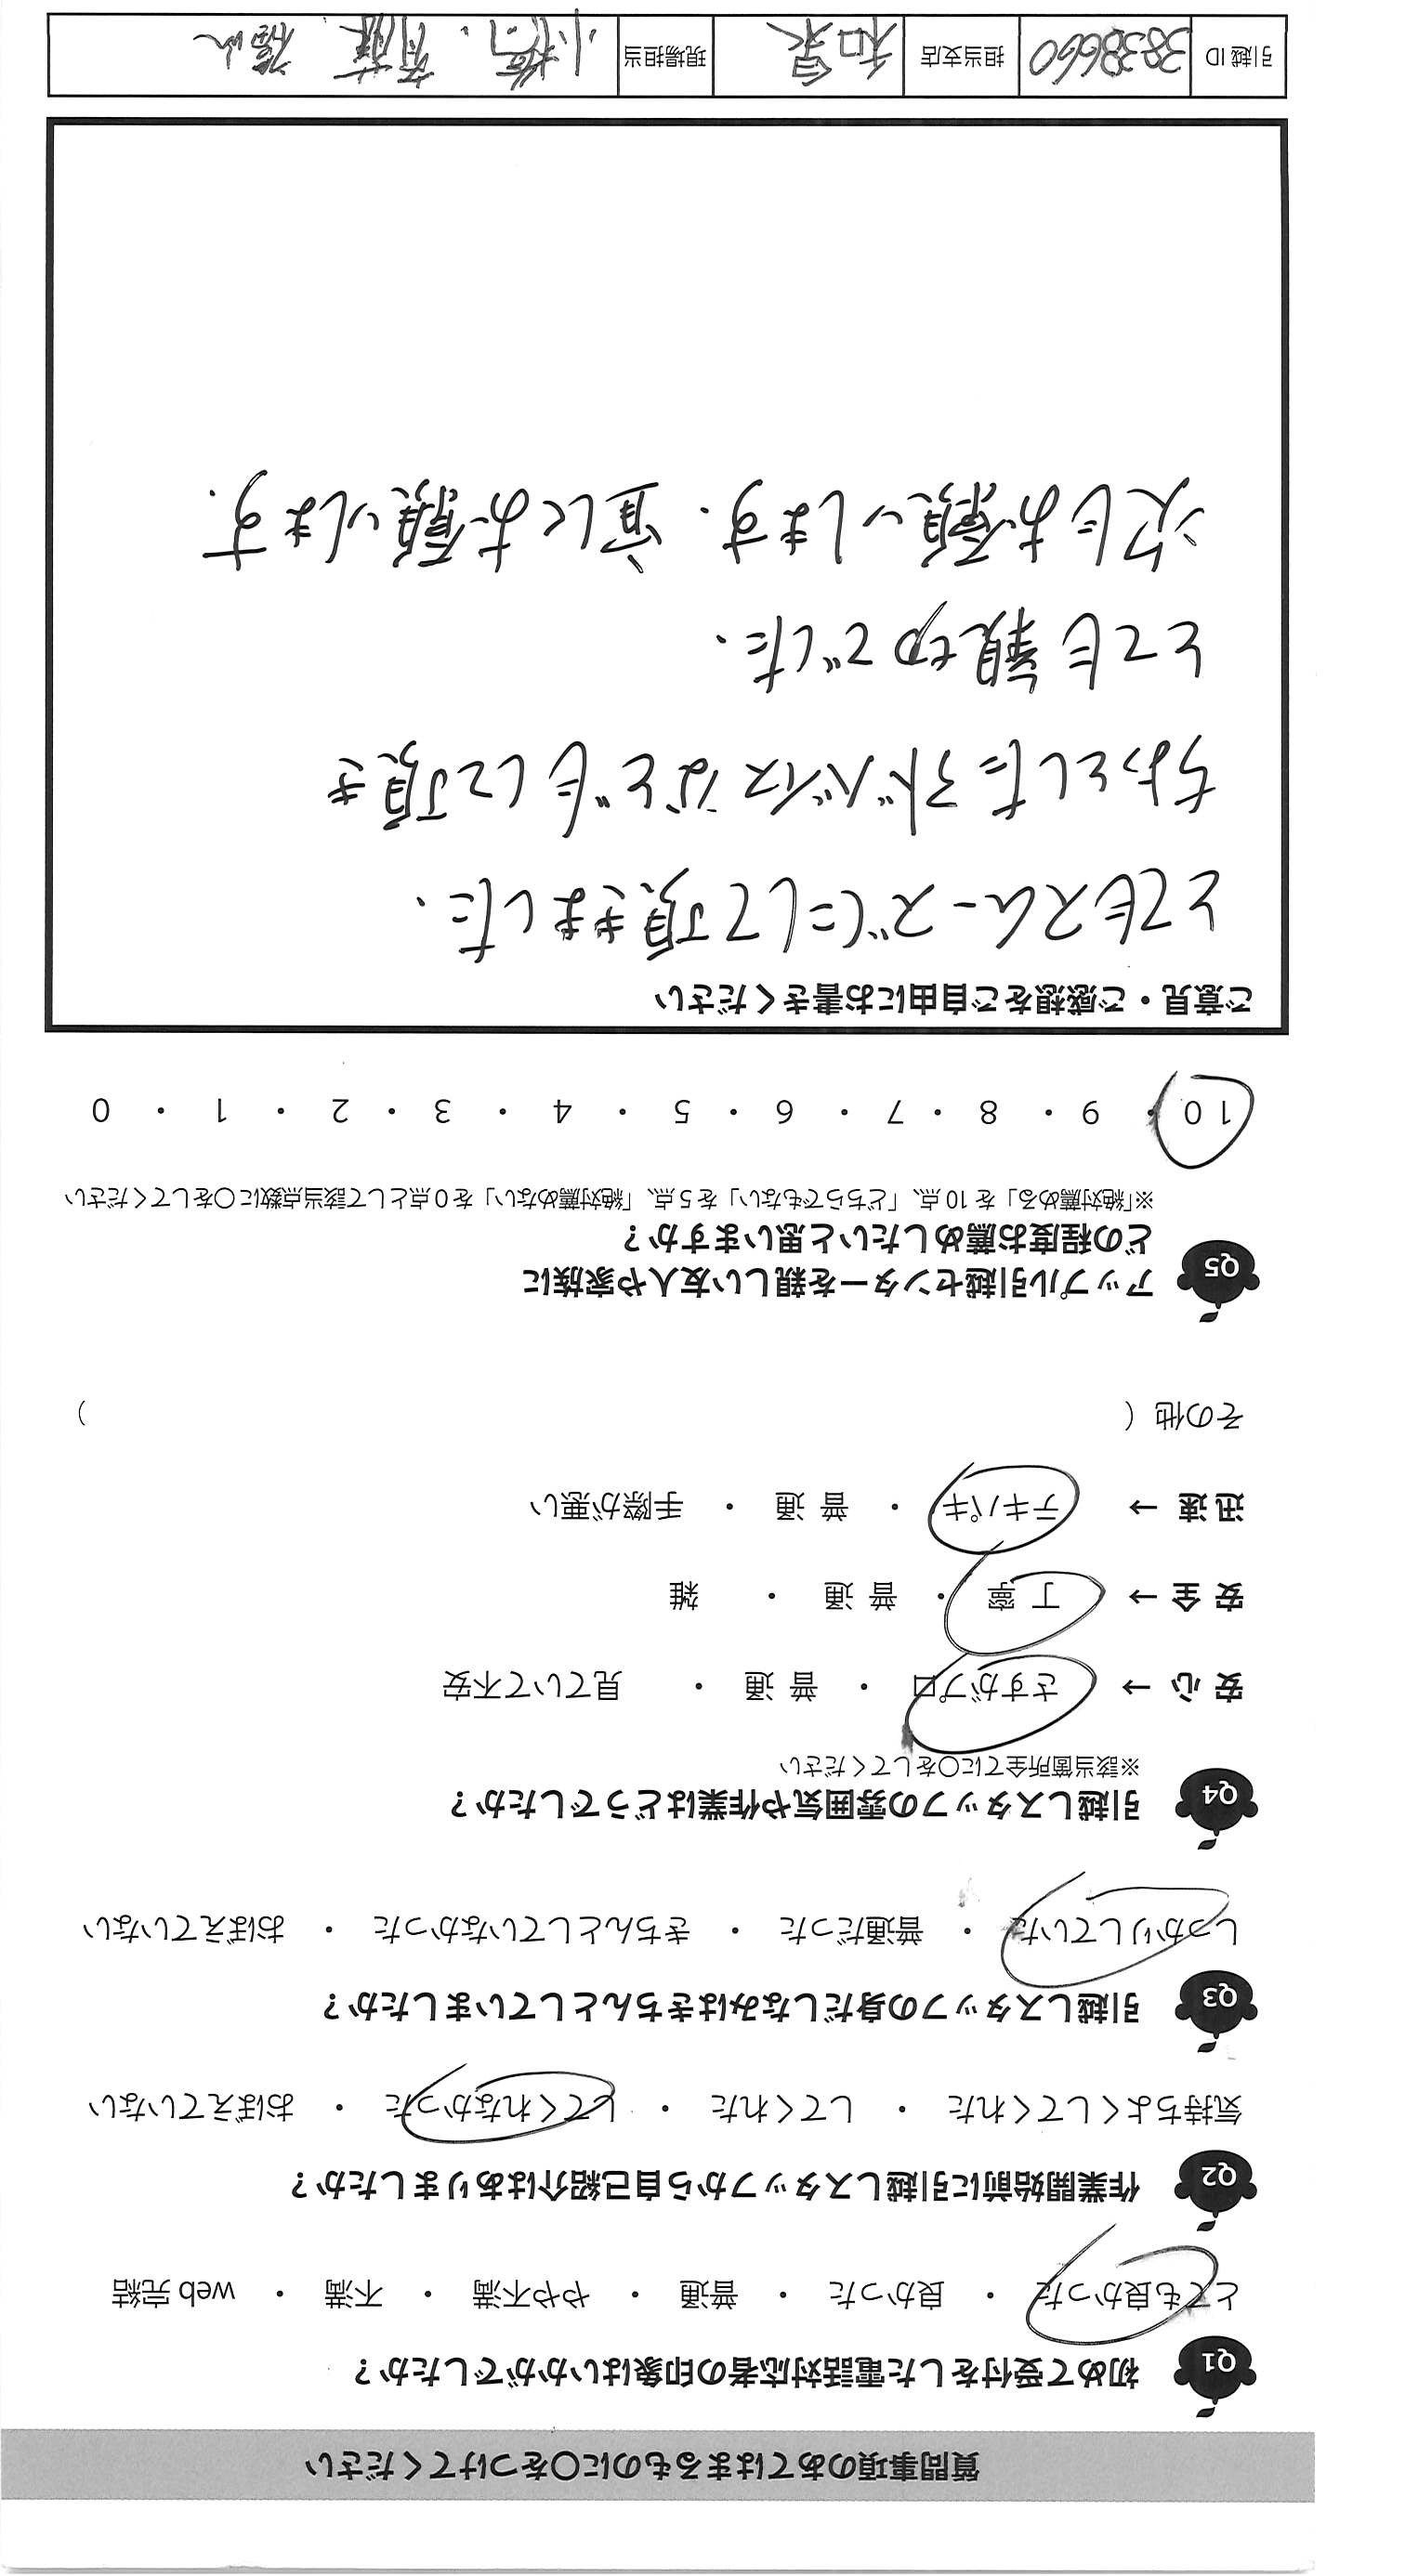 質問事項のあてはまるものに〇をつけてください
Q1 初めて受付をした電話対応者の印象はいかがでしたか？
とても良かった ・ 良かった ・ 普通 ・ やや不満 ・ 不満 ・ web 完結
Q2 作業開始前に引越しスタッフから自己紹介はありましたか？
気持ちよくしてくれた ・ してくれた ・ してくれなかった ・ おぼえていない
Q3 引越しスタッフの身だしなみはきちんとしていましたか？
しっかりしていた ・ 普通だった ・ きちんとしていなかった ・ おぼえていない
Q4 引越しスタッフの雰囲気や作業はどうでしたか？
※該当箇所全てに〇をしてください
安 心 → さすがプロ ・ 普 通 ・ 見ていて不安
安 全 → 丁 寧 ・ 普 通 ・ 雑
迅 速 → テキパキ ・ 普 通 ・ 手際が悪い
その他（ ）
Q5 アップル引越センターを親しい友人や家族に
どの程度お薦めしたいと思いますか？
※「絶対薦める」を 10 点、「どちらでもない」を 5 点、「絶対薦めない」を 0 点として該当点数に〇をしてください
10 ・ 9 ・ 8 ・ 7 ・ 6 ・ 5 ・ 4 ・ 3 ・ 2 ・ 1 ・ 0
ご意見・ご感想をご自由にお書きください
とてもスムーズにして頂きました.
ちょっとしたアドバイスなどもして頂き
とても親切でした.
次もお願いします. 宜しくお願いします.
引越 ID 3838660 担当支店 和泉 現場担当 小橋、斉藤、